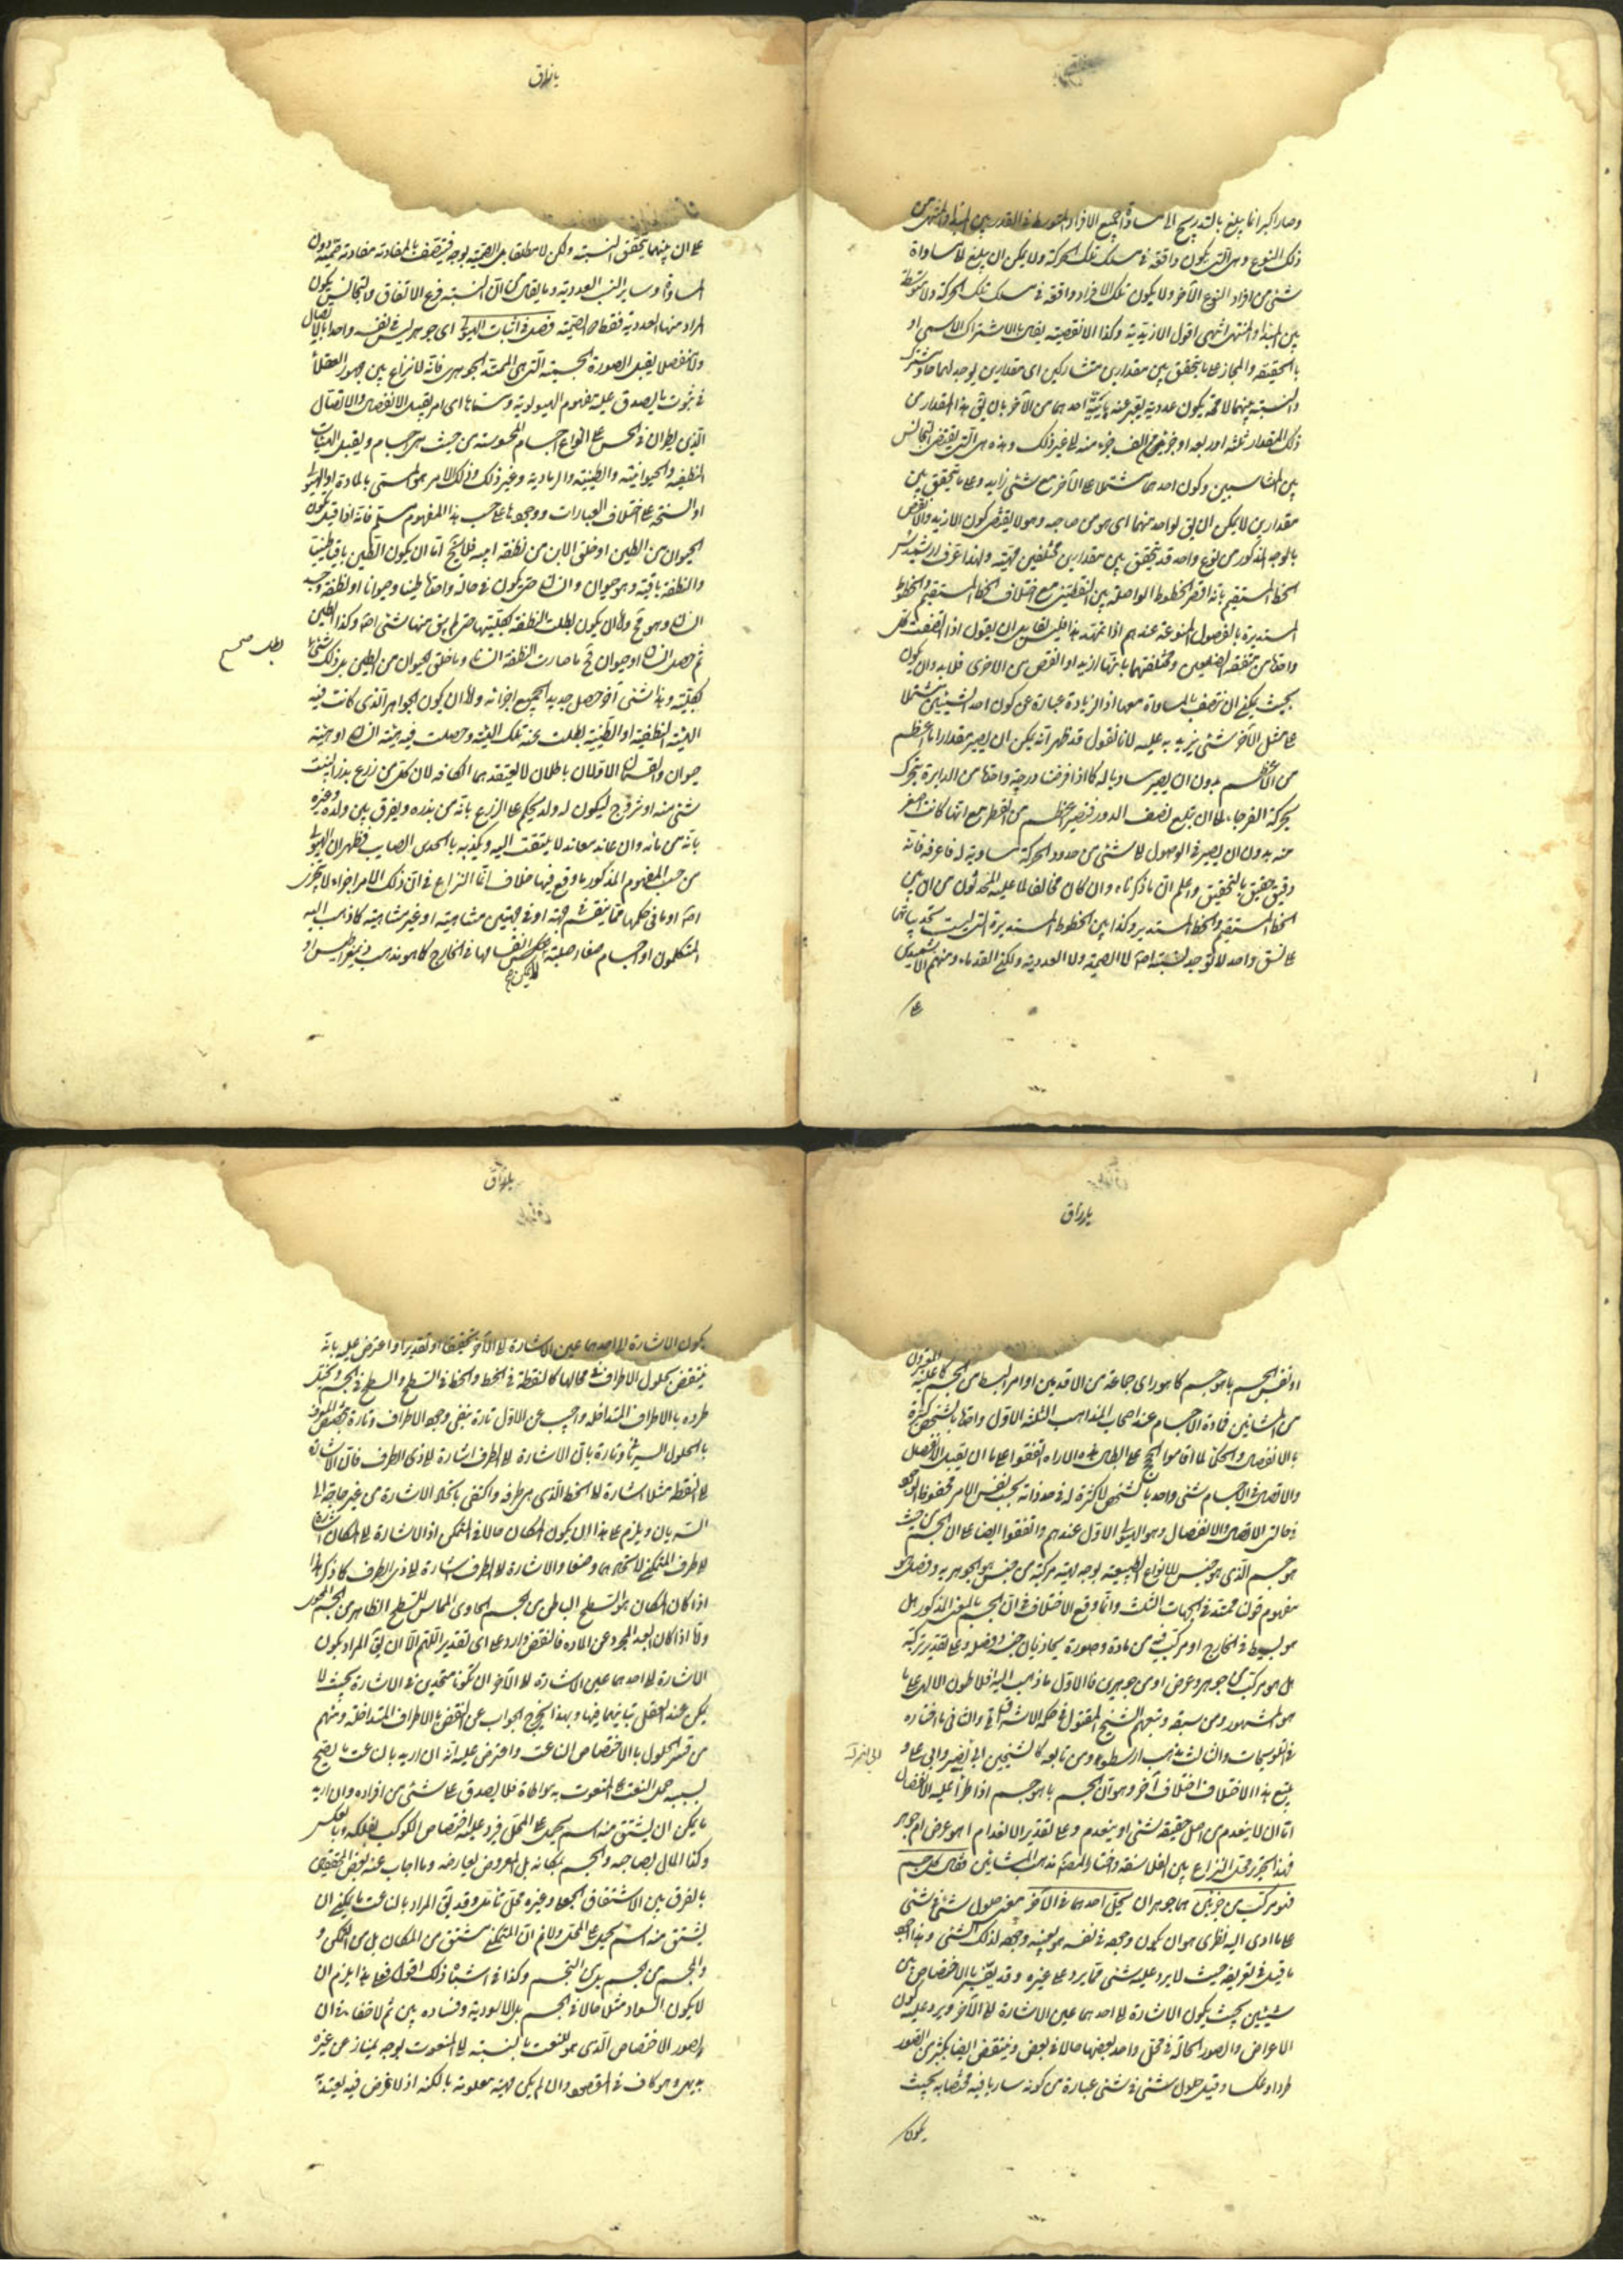 وصار اكبر انما يبلغ بالتدريج الى مساواة جميع الافراد المتوسطة في القدر بين المبدأ والمنتهى من
ذلك النوع وهي التي يكون واقعة في مسلك تلك الحركة ولا يمكن ان يبلغ الى مساواة
شئ من افراد النوع الآخر ولا يكون تلك الافراد واقعة في مسلك تلك الحركة ولا متوسطة
بين المبدا والمنتهى انتهى اقول الازيدية وكذا الانقصية يقال بالاشتراك الاسمى او
بالحقيقة والمجاز على ما يتحقق بين مقدارين متشاركين اى مقدارين يوجد لهما عاد مشترك
والنسبة بينهما لا محة يكون عددية يعبر عنه احدهما من الآخر بان يق هذا المقدار من
ذلك المقدار ثلثه او ربعه او جزء من الف جزء منه الى غير ذلك وهذه هى التى يقتضى التجانس
بين المتناسبين وكون احدهما مشتملا على الآخر مع شئ زايد وعلى ما يتحقق بين
مقدارين لا يمكن ان يق لواحد منهما اى هو من صاحبه وهو لا يقتضى كون الازيد والانقص
بالوجه المذكور من نوع واحد قد يتحقق بين مقدارين مختلفين مهية ولهذا عرف ارشميدس
الخط المستقيم بانه اقصر الخطوط الواصلة بين النقطتين مع اختلاف الخط المستقيم والخطوط
المستديرة بالفصول المنوعة عندهم اذا تمهد هذا فليس لقايل ان يقول اذا اتصفت كل
واحدة من متفقة الضلعين ومختلفتهما بانها ازيد او انقص من الاخرى فلا بد وان يكون
بحيث يمكن ان تتصف بالمساواة معها اذ الزيادة عبارة عن كون احد الشيئين مشتملا
على مثل الآخر وشئ يزيد به عليه لانا نقول قد ظهر انه يمكن ان يصير مقدار ما اعظم
من الاعظم بدون ان يصير مساويا له كما اذا فرضنا درجة واحدة من الدايرة يتحرك
بحركة الفرجار الى ان يبلغ نصف الدور فتصير اعظم من القطر مع انها كانت اصغر
منه بدون ان يصير في الوصول الى شئ من حدود الحركة مساوية له فاعرفه فانه
دقيق حقيق بالتحقيق واعلم ان ما ذكرناه وان كان مخالفا لما عليه المحدثون من ان بين
الخط المستقيم والخط المستدير وكذا بين الخطوط المستديرة التى ليست تحديباتها
على نسق واحد لا توجد نسبة اصلا لا الصمية ولا العددية ولكن القدماء ومنهم الارشميدس
على ان بينهما يتحقق النسبة ولكن لا مطلقا بل الصمية بوجه فيتصف بالمفاوتة مفاوتة صمية دون
المساواة وساير النسب العددية وما يقال من ان النسبة فرع الاتفاق والتجانس يكون
المراد منها العددية فقط لا الصمية فصل في اثبات الهيولى اى جوهر ليس في نفسه واحدا بالاتصال
ولا منفصلا يقبل الصورة الجسمية التى هى الممتد الجوهرى فانه لا نزاع بين جمهور العقلاء
في ثبوت ما يصدق عليه مفهوم الهيولوية ومسماها اى امر يقبل الانفصال والاتصال
الذي يطرآن في الحس على انواع اجسام المحسوسة من حيث هى اجسام ويقبل الهيئات
النطفية والحيوانية والطينية والرمادية وغير ذلك وذلك الامر هو المسمى بالمادة او الهيولى
او السنخ على اختلاف العبارات ووجودها بحسب هذا المفهوم مسلم فانه اذا قيل تكون
الحيوان من الطين او خلق الابن من نطفة ابيه فلا يخ اما ان يكون الطين باقيا طينا
والنطفة باقية وهو حيوان وانسان حتى يكون في حالة واحدة طينا وحيوانا او نطفة وجسد
انسان وهو مح واما ان يكون بطلت النطفة بكليتها حتى لم يبق منها شئ اصلا وكذا الطين
ثم حصل انسان او حيوان فح ما صارت النطفة انسانا وما خلق الحيوان من الطين بل ذلك شئ
بكليته وهذا شئ آخر حصل جديد بجميع اجزائه واما ان يكون الجوهر الذى كانت فيه
الهيئة النطفية او الطينية بطلت عنه تلك الهيئة وحصلت فيه هيئة انسان او هيئة
حيوان والقسمان الاولان باطلان لا يعتقدهما الكافة لان كل من زرع بذرا لينبت
شئ منه او تزوج ليكون له ولد يحكم على الزرع بانه من بذره ويفرق بين ولده وغيره
بانه من مائه وان عاند معاند لا يلتفت اليه ويكذبه بالحدس الصايب فظهر ان الهيولى
من حسب المفهوم المذكور ما وقع فيها خلاف انما النزاع في ان ذلك الامر اجزاء لا يتجزى
اصلا او ما في حكمها مما ينقسم في جهة او في جهتين متناهية او غير متناهية كما ذهب اليه
المتكلمون او اجسام صغار صلبة لا يمكن انفصالها في الخارج كما هو مذهب ذيمقراطيس او
او نفس الجسم بما هو جسم كما هو راى جماعة من الاقدمين او امر ابسط من الجسم كما عليه المعتبرون
من المشائين فمادة الاجسام عند اصحاب المذاهب الثلثة الاول واحدة بالشخص كثيرة
بالانفصال والحكماء لما اقاموا الحجج على ابطال هذه الاراء اتفقوا على ان ما يقبل الانفصال
والاتصال في الاجسام شئ واحد بالشخص لا كثرة له في حد ذاته بحسب نفس الامر محفوظ الوجود
في حالتى الاتصال والانفصال وهو الهيولى الاول عندهم واتفقوا ايضا على ان الجسم من حيث
هو جسم الذى هو جنس للانواع الطبيعية يوجد مهية مركبة من جنس هو الجوهرية وفصل هو
مفهوم قولنا ممتد في الجهات الثلث وانما وقع الاختلاف في ان الجسم بالمعنى المذكور هل
هو بسيط في الخارج او مركب فيه من مادة وصورة يحاذيان جنسه وفصله وعلى تقدير تركبه
هل هو مركب من جوهر وعرض او من جوهرين فالاول ما ذهب اليه افلاطون الالهى على ما
هو المشهور ومن سبقه وتبعهم الشيخ المقتول في حكمة الاشراق والثانى ما اختاره
في التلويحات والثالث مذهب ارسطو ومن تابعه كالشيخين ابي نصر وابي على و
يتبع هذا الاختلاف اختلاف آخر وهو ان الجسم بما هو جسم اذا طرأ عليه الانفصال
اما ان لا ينعدم من اصل حقيقته شئ او ينعدم وعلى تقدير الانعدام اهو عرض ام جوهر
فهذا تحرير محل النزاع بين الفلاسفة واختار المصنف مذهب المشائين فقال كل جسم
فهو مركب من جزئين هما جوهران يحل احدهما في الآخر معنى حلول شئ في شئ
على ما ادى اليه نظرى هو ان يكون وجوده في نفسه هو بعينه وجوده لذلك الشئ وهذا اجود
ما قيل في تعريفه حيث لا يرد عليه شئ مما يرد على غيره وقد يفسر بالاختصاص بين
شيئين بحيث يكون الاشارة الى احدهما عين الاشارة الى الآخر ويرد عليه كون
الاعراض والصور الحالة في محل واحد بعضها حالا في بعض وينتقض ايضا بكثير من الصور
طردا وعكسا وقيل حلول شئ في شئ عبارة من كونه ساريا فيه مختصا به بحيث
يكون
يكون الاشارة الى احدهما عين الاشارة الى الآخر تحقيقا او تقديرا واعترض عليه بانه
ينتقض بحلول الاطراف في محالها كالنقطة في الخط والخط في السطح والسطح في الجسم ويختل
طرده بالاطراف المتداخلة واجيب عن الاول تارة بنفى وجود الاطراف وتارة بتخصيص المعرف
بالحلول السريانى وتارة بان الاشارة الى الطرف اشارة الى ذى الطرف فان الاشارة
الى النقطة مثلا اشارة الى الخط الذى هى طرفه واكتفى باتحاد الاشارة من غير حاجة الى
السريان ويلزم على هذا ان يكون المكان حالا في المتمكن اذ الاشارة الى المكان اشارة
الى طرف المتمكن لاتحادهما وضعا والاشارة الى الطرف اشارة الى ذى الطرف كما ذكر هذا
اذا كان المكان هو السطح الباطن من الجسم الحاوى المماس للسطح الظاهر من الجسم المحوى
واما اذا كان البعد المجرد عن المادة فالنقض وارد على اى تقدير اللهم الا ان يق المراد بكون
الاشارة الى احدهما عين الاشارة الى الآخر ان تكونا متحدين في الاشارة بحيث لا
يمكن عند العقل تباينهما فيها وبهذا يخرج الجواب عن النقض بالاطراف المتداخلة ومنهم
من فسر الحلول بالاختصاص الناعت واعترض عليه انه ان اريد بالناعت ما يصح
بسببه حمل النعت على المنعوت به مواطاة فلا يصدق على شئ من افراده وان اريد
ما يمكن ان يشتق منه اسم يحمل على المحل فيرد عليه اختصاص الكوكب بفلكه وبالعكس
وكذا المال لصاحبه والجسم بمكانه بل المعروض بعارضه وما اجاب عنه بعض المحققين
بالفرق بين الاشتقاق الجعلى وغيره محل تامل وقد يق المراد بالناعت ما يمكن ان
يشتق منه اسم يحمل على المحل ولا نم ان المتمكن مشتق من المكان بل من التمكن و
والجسم من الجسم بل من التجسم وكذا في اشباه ذلك اقول فعلى هذا يلزم ان
لا يكون السواد مثلا حالا في الجسم بل الاسودية وفساده بين ثم لا خفاء في ان
تصور الاختصاص الذى هو للنعت بالنسبة الى المنعوت بوجه يمتاز عن غيره
بديهى وهو كاف في المقصود وان لم يكن مهيته معلومة بالكنه اذ لا غرض فيه يعتد به